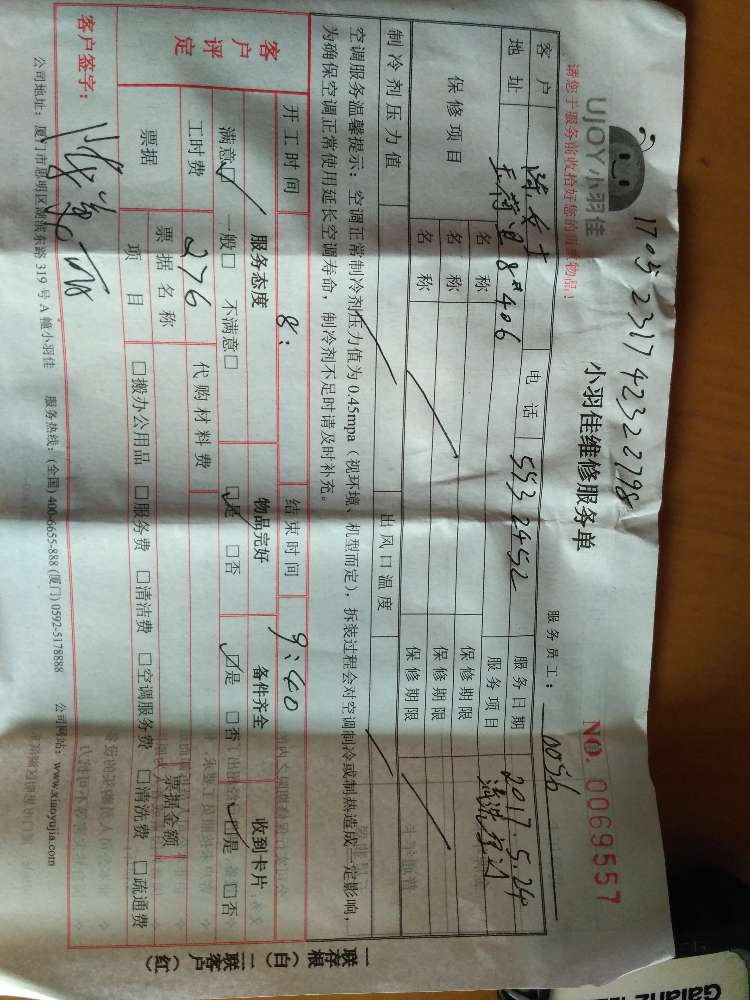 1705231742322798
UJOY小羽佳
小羽佳维修服务单
NO. 0069557
请您于服务前收拾好您的贵重物品!
服务员工: 0056
客户 女士 电话 5532452 服务日期 2017.5.24
地址 8#406 服务项目 清洗空调
保修项目 名称 保修期限
名称 保修期限
名称 保修期限
制冷剂压力值 出风口温度
空调服务温馨提示:空调正常制冷剂压力值为0.45mpa(视环境、机型而定),拆装过程会对空调制冷或制热造成一定影响,
为确保空调正常使用延长空调寿命,制冷剂不足时请及时补充。
开工时间 8: 结束时间 9:40
客户评定 服务态度 物品完好 备件齐全 收到卡片
满意☑ 一般□ 不满意□ ☑是 □否 ☑是 □否 ☑是 □否
工时费 276 代购材料费
票据 票据名称 票据金额
项目 □搬办公用品 □服务费 □清洁费 □空调服务费 □清洗费 □疏通费
客户签字:
公司地址:厦门市思明区湖滨东路319号A幢小羽佳 服务热线:(全国)400-6655-888 (厦门) 0592-5178888 公司网站:www.xiaoyujia.com
一联存根(白)二联客户(红)
Galanz